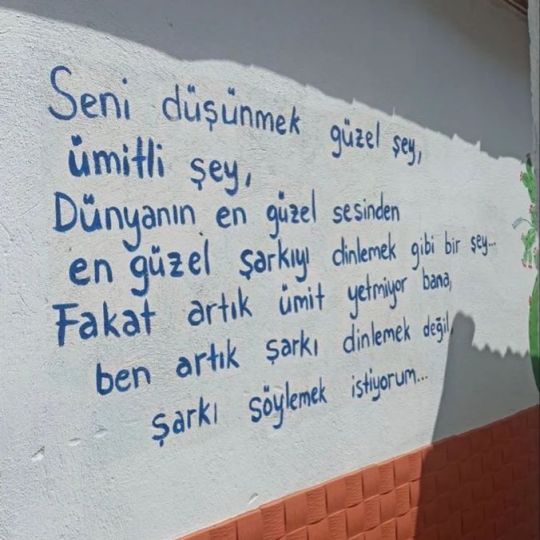 Seni düşünmek güzel şey,
ümitli şey,
Dünyanın en güzel sesinden
en güzel şarkıyı dinlemek gibi bir şey...
Fakat artık ümit yetmiyor bana,
ben artık şarkı dinlemek değil,
şarkı söylemek istiyorum...